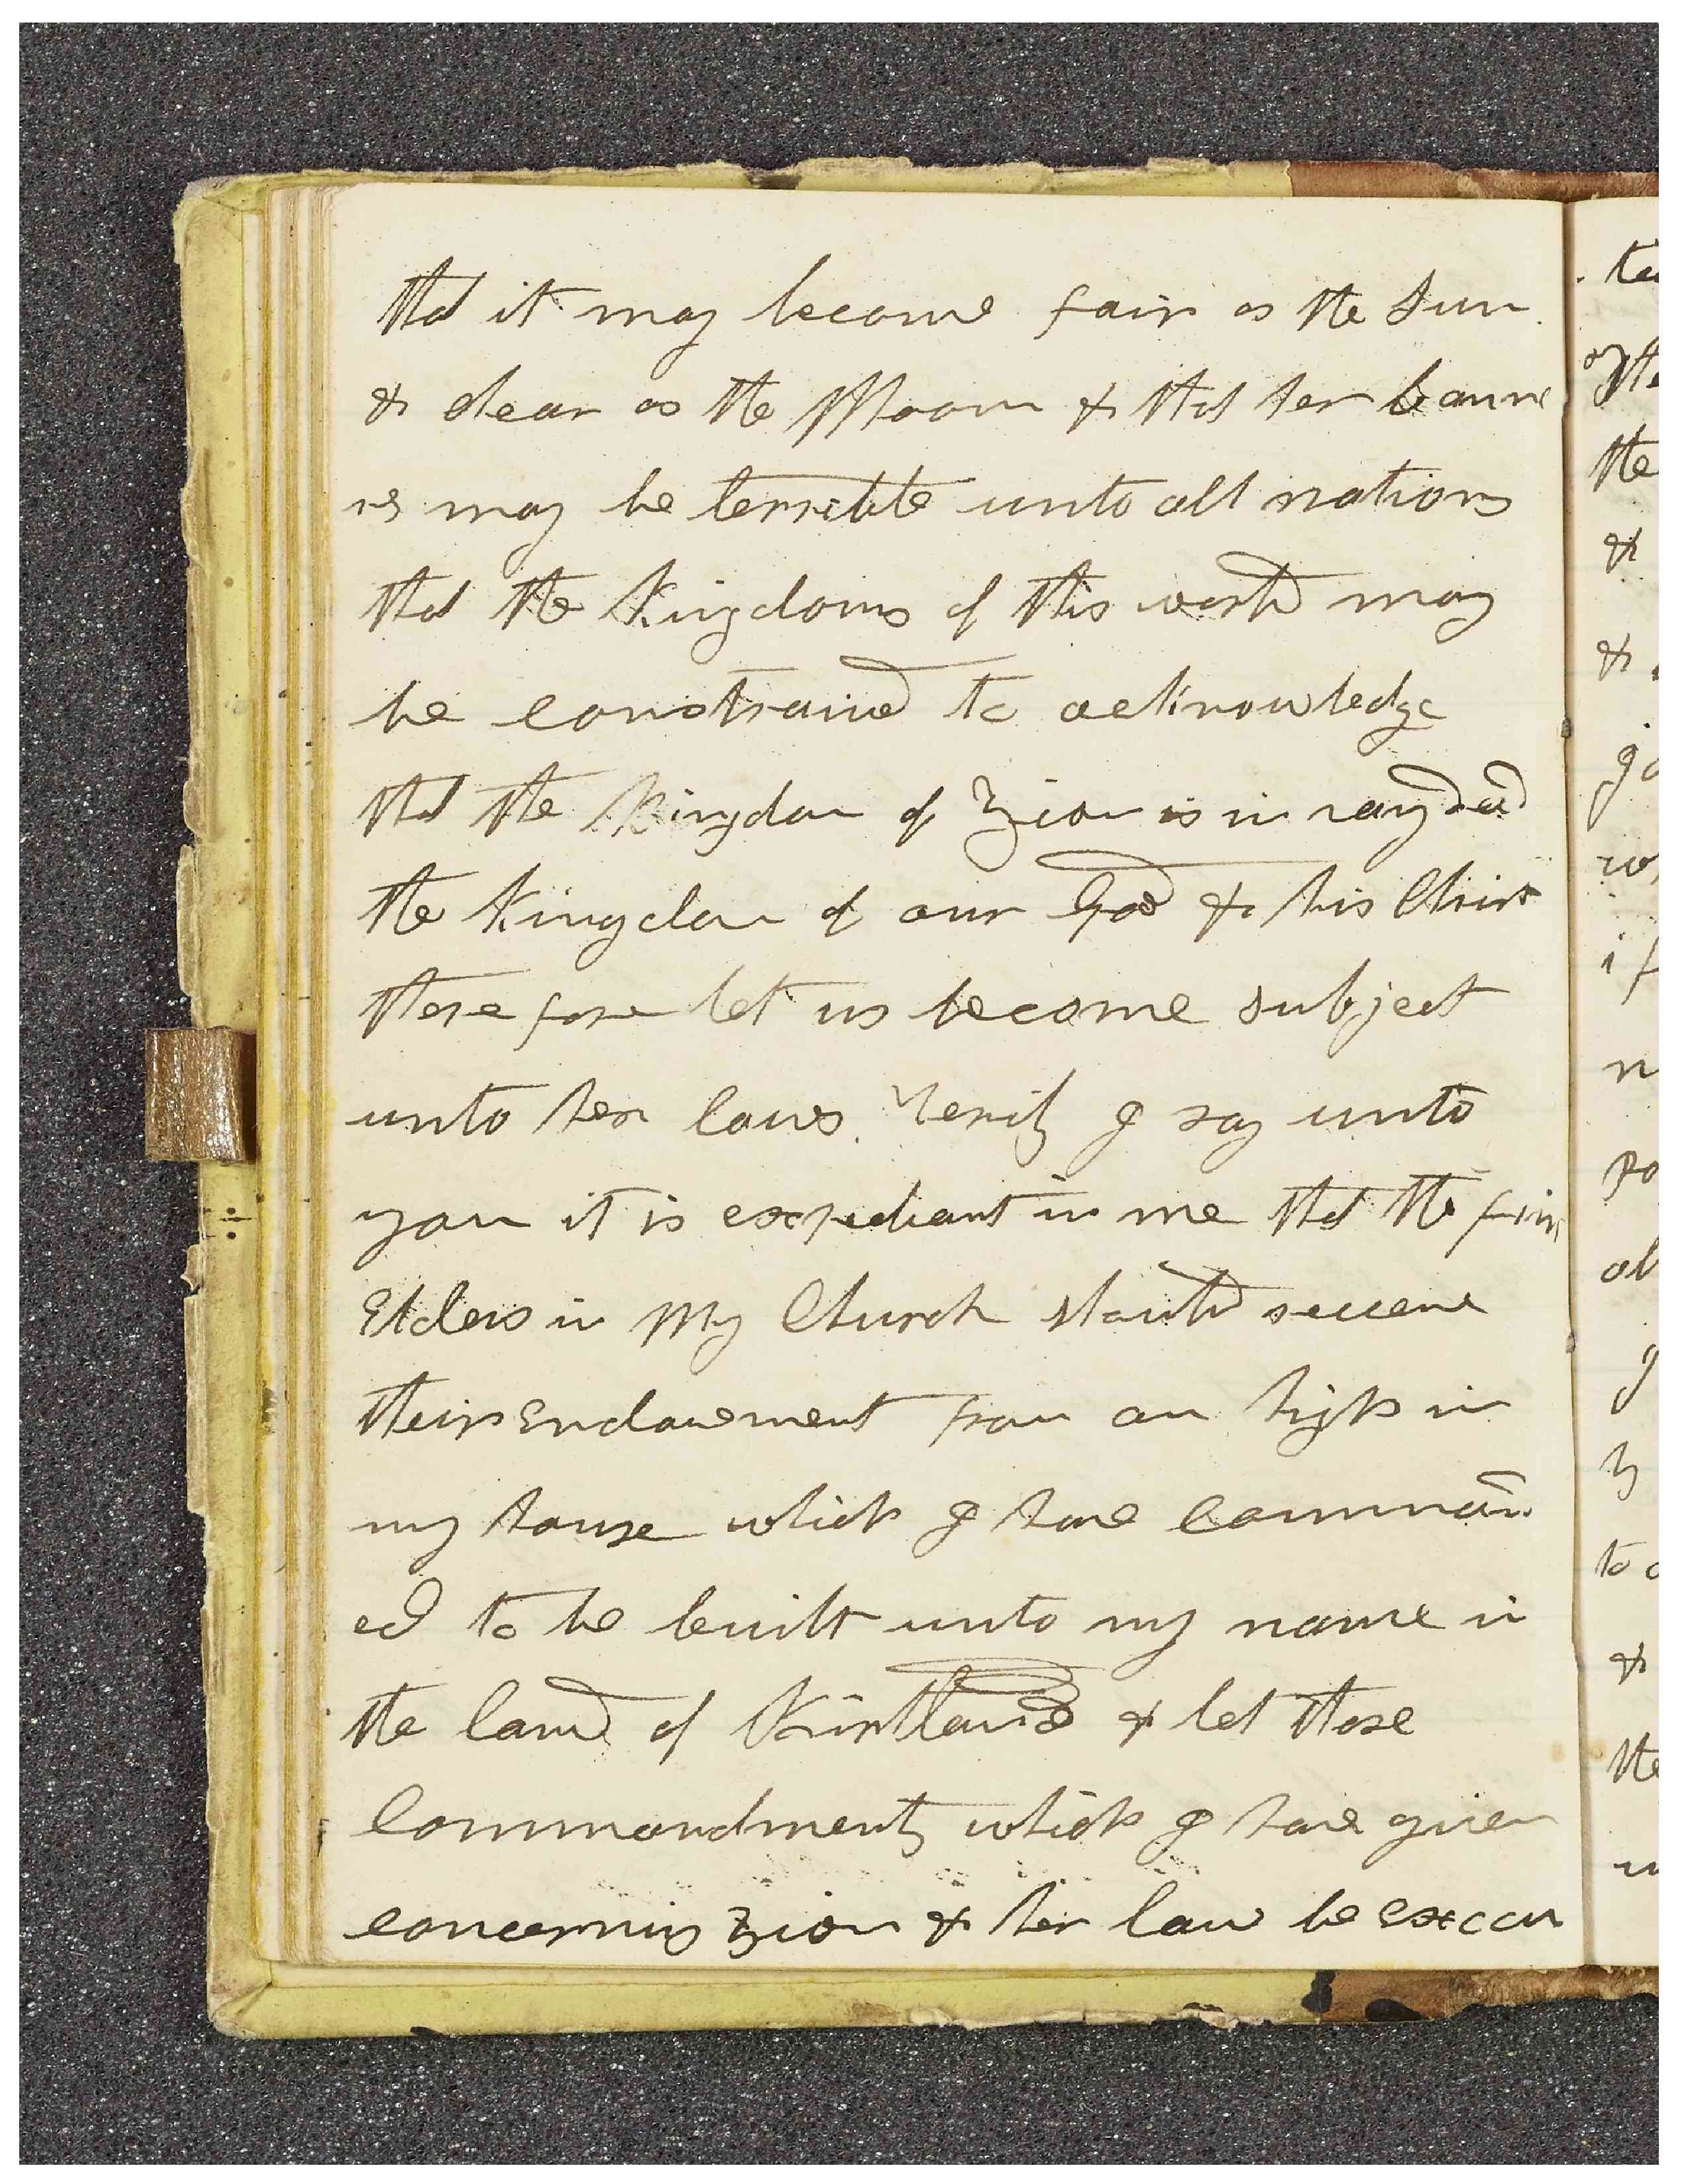 that it may become fair as the Sun.
& clear as the Moon & that her banne
rs may be terrible unto all nations
that the Kingdoms of this world may
be constrained to acknowledge
that the Kingdom of Zion is in very deed
the Kingdom of our God & his Christ
therefore let us become subject
unto her laws. Verily I say unto
you it is expediant in me that the first
Elders in My Church should receive
their Endowement from on high in
my house which I have comman
ed to be built unto my name in
the land of Kirtland & let those
Commandments which I have given
concerning Zion & her law be execu
the
&
&
if
to
&
the